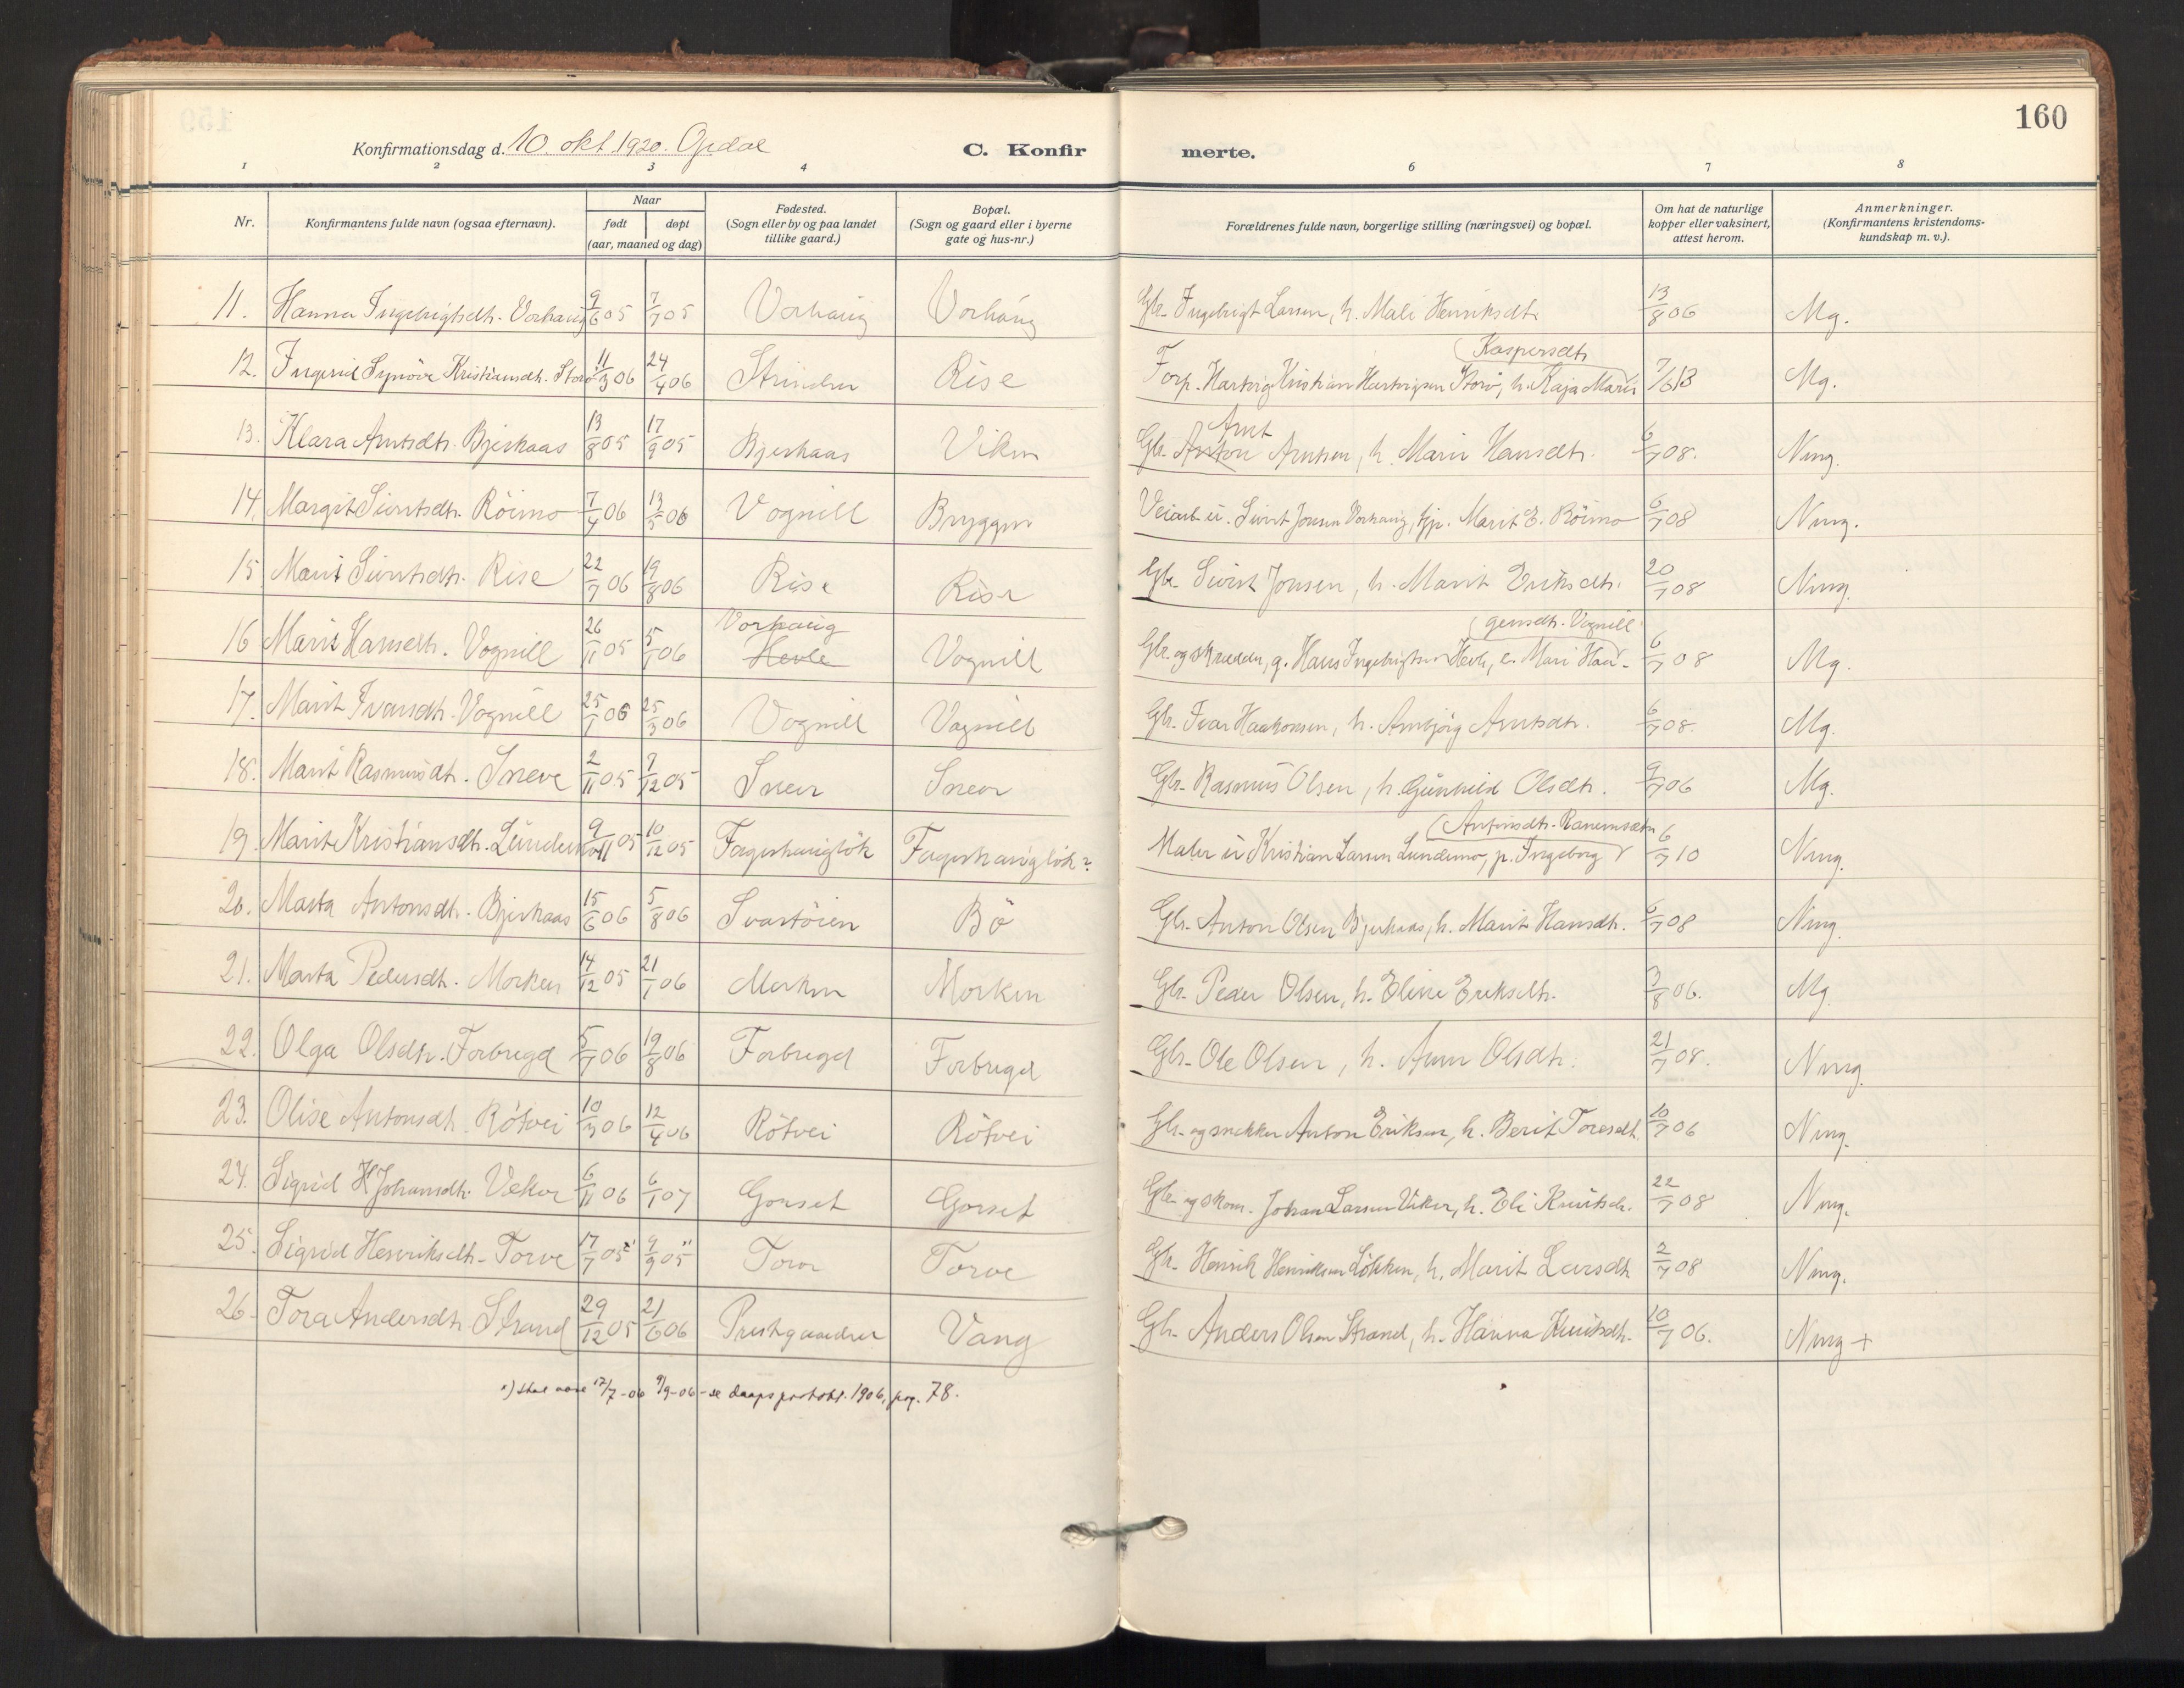 160
Konfirmationsdag d. 10. okt. 1920. Opdal
C. Konfirmerte.
1 2 3 4 6 7 8
Nr. Konfirmantens fulde navn (ogsaa efternavn). Naar født døpt (aar, maaned og dag) Fødested. (Sogn eller by og paa landet tillike gaard.) Bopæl. (Sogn og gaard eller i byerne gate og hus-nr.) Forældrenes fulde navn, borgerlige stilling (næringsvei) og bopæl. Om hat de naturlige kopper eller vaksinert, attest herom. Anmerkninger. (Konfirmantens kristendoms-kundskap m. v.).
11. Hanna Ingebrigtsdtr. Vorhaug 9/6 05 7/7 05 Vorhaug Vorhaug Gbr. Ingebrigt Larsen, h. Mali Henriksdtr. 13/8 06 Mg.
12. Ingerid Synöve Kristiansdtr. Storö 11/3 06 24/4 06 Strinden Rise Forp. Hartvig Kristian Hartvigsen Storö, h. Kaja Marie Kaspersdtr. 7/6 13 Mg.
13. Klara Arntsdtr. Bjerkaas 13/8 05 17/9 05 Bjerkaas Viken Gbr. Anton Arnt Arntsen, h. Marit Hansdtr. 6/7 08. Nmg.
14. Margit Sivertsdtr. Röimo 7/4 06 13/5 06 Vognill Bryggen Veiarb. u. Sivert Jonsen Vorhaug, pp. Marit E. Röimo 6/7 08 Nmg.
15 Marit Sivertsdtr. Rise 22/7 06 19/8 06 Rise Rise Gbr. Sivert Jonsen, h. Marit Eriksdtr. 20/7 08 Nmg.
16 Marit Hansdtr. Vognill 26/11 05 5/1 06 Vorhaug Hevle Vognill Gbr. og skrædder, g. Hans Ingebrigtsen Hevle, e. Mari Haa- gensdtr. Vognill 6/7 08 Mg.
17. Marit Ivarsdtr. Vognill 25/1 06 25/3 06 Vognill Vognill Gbr. Ivar Haakonsen, h. Anbjörg Arntsdtr. 6/7 08. Mg.
18. Marit Rasmusdtr. Sneve 2/11 05 7/12 05 Sneve Sneve Gbr. Rasmus Olsen, h. Gunhild Olsdtr. 9/7 06 Mg.
19. Marit Kristiansdtr. Lundemo 9/11 05 10/12 05 Fagerhauglök Fagerhauglök? Maler u. Kristian Larsen Lundemo, p. Ingeborg Antonsdtr. 6/7 10 Nmg.
20. Marta Antonsdtr. Bjerkaas 15/6 06 5/8 06 Svartöien Bö Gbr. Anton Olsen Bjerkaas, h. Marit Hansdtr. 6/7 08 Nmg.
21. Marta Pedersdtr. Morken 14/12 05 21/1 06 Morken Morken Gbr. Peder Olsen, h. Eline Eriksdtr. 3/8 06. Mg.
22. Olga Olsdtr. Forbregd 5/7 06 19/8 06 Forbregd Forbregd Gbr. Ole Olsen, h. Anne Olsdtr. 21/7 08. Nmg.
23. Olise Antonsdtr. Rötvei 10/3 06 12/4 06 Rötvei Rötvei Gbr. og snekker Anton Eriksen, h. Berit Toresdtr. 10/7 06 Nmg.
24. Sigrid H Johansdtr. Veker 6/11 06 6/1 07 Gorset Gorset Gbr. og skom. Johan Larsen Veker, h. Eli Knutsdr. 22/7 08 Nmg.
25. Sigrid Henriksdtr. Torve 17/7 05 x) 9/9 05 Torve Torve Gbr. Henrik Henriksen Lökken, h. Marit Larsdtr. 2/7 08 Nmg.
26. Tora Andersdtr. Strand 29/12 05 21/6 06 Prestgaarden Vang Gbr. Anders Olsen Strand, h. Hanna Knutsdtr. 10/7 06. Nmg +
x) skal være 17/7-06 9/9-06 - se daapsprotokl. 1906, pag. 78.